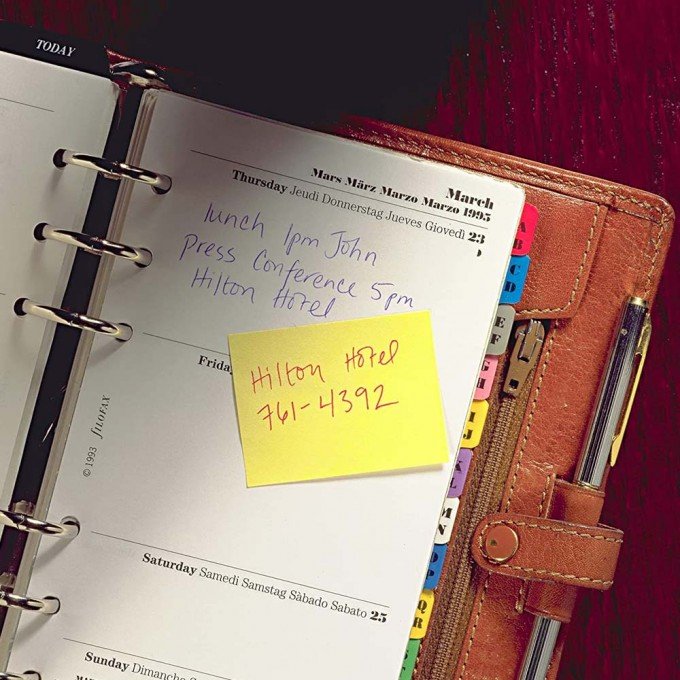 TODAY
March
Mars März Marzo Marzo 1995
Thursday Jeudi Donnerstag Jueves Giovedì 23
lunch 1pm John
Press Conference 5pm
Hilton Hotel
Frida
Hilton Hotel
761-4392
© 1993 FILOFAX
Saturday Samedi Samstag Sàbado Sabato 25
Sunday Dimanche
A
B
C
D
E
F
G
H
I
J
K
L
M
N
O
P
Q
R